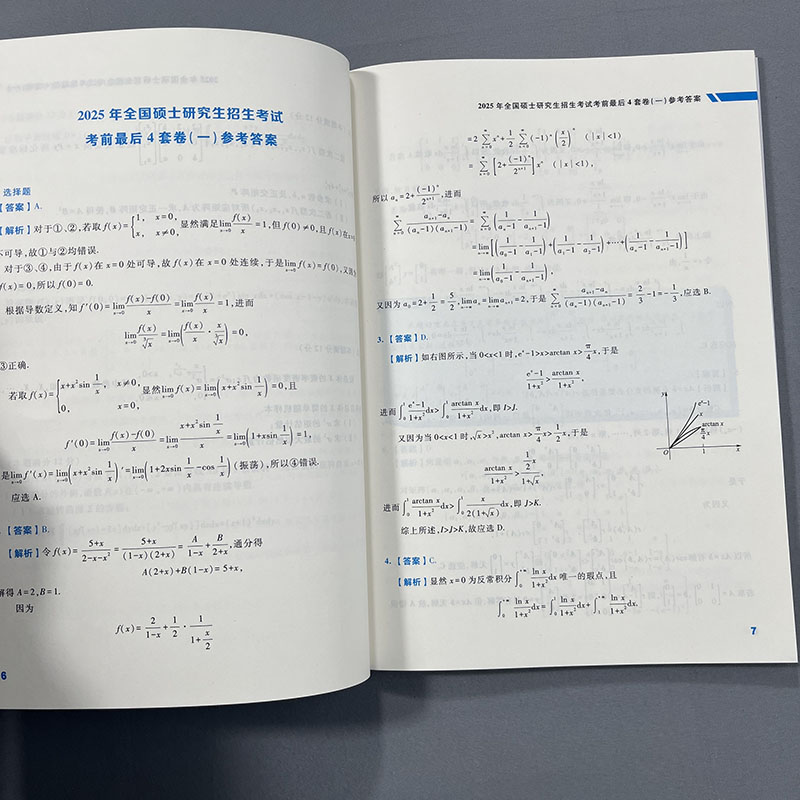 2025 年全国硕士研究生招生考试
考前最后 4 套卷(一)参考答案
选择题
【答案】A.
【解析】对于①、②,若取 f(x)={1, x=0, x, x≠0, 显然满足 lim_{x→0} f(x)/x=1,但 f(0)≠0,且 f(x)在 x=0
不可导,故①与②均错误.
对于③、④,由于 f(x)在 x=0 处可导,故 f(x)在 x=0 处连续,于是 lim_{x→0} f(x)=f(0),又因为
f(x)=0,所以 f(0)=0.
根据导数定义,知 f′(0)=lim_{x→0} (f(x)-f(0))/x=lim_{x→0} f(x)/x=1,进而
lim_{x→0} f(x)/∛x=lim_{x→0}(f(x)/x · x/∛x)=0,
③正确.
若取 f(x)={x+x²sin 1/x, x≠0, 0, x=0, 显然 lim_{x→0} f(x)=lim_{x→0}(x+x²sin 1/x)=0,且
f′(0)=lim_{x→0} (f(x)-f(0))/x=lim_{x→0} (x+x²sin 1/x)/x=lim_{x→0}(1+xsin 1/x)=1,
是 lim_{x→0} f′(x)=lim_{x→0}(x+x²sin 1/x)′=lim_{x→0}(1+2xsin 1/x-cos 1/x)(振荡),所以④错误.
应选 A.
【答案】B.
【解析】令 f(x)=(5+x)/(2-x-x²)=(5+x)/((1-x)(2+x))=A/(1-x)+B/(2+x),通分得
A(2+x)+B(1-x)=5+x,
解得 A=2,B=1.
因为
f(x)=2/(1-x)+1/2·1/(1+x/2)
6
2025 年全国硕士研究生招生考试考前最后 4 套卷(一)参考答案
=2∑_{n=0}^{∞} xⁿ+1/2 ∑_{n=0}^{∞} (-1)ⁿ(x/2)ⁿ (|x|<1)
=∑_{n=0}^{∞}[2+(-1)ⁿ/2ⁿ⁺¹]xⁿ (|x|<1),
所以 aₙ=2+(-1)ⁿ/2ⁿ⁺¹,进而
∑_{n=0}^{∞} (aₙ₊₁-aₙ)/((aₙ-1)(aₙ₊₁-1))=∑_{n=0}^{∞}(1/(aₙ-1)-1/(aₙ₊₁-1))
=lim_{n→∞}[(1/(a₀-1)-1/(a₁-1))+(1/(a₁-1)-1/(a₂-1))+⋯+(1/(aₙ-1)-1/(aₙ₊₁-1))]
=lim_{n→∞}(1/(a₀-1)-1/(aₙ₊₁-1)),
又因为 a₀=2+1/2=5/2,lim_{n→∞} aₙ=lim_{n→∞} aₙ₊₁=2,于是 ∑_{n=0}^{∞} (aₙ₊₁-aₙ)/((aₙ-1)(aₙ₊₁-1))=2/3-1=-1/3,应选 B.
3. 【答案】D.
【解析】如右图所示,当 0<x<1 时,eˣ-1>x>arctan x>π/4 x,于是
(eˣ-1)/(1+x²)>arctan x/(1+x²),
进而∫₀¹ (eˣ-1)/(1+x²)dx>∫₀¹ arctan x/(1+x²)dx,即 I>J.
又因为当 0<x<1 时,√x>x²,arctan x>π/4 x>1/2 x,于是
arctan x/(1+x²)>(1/2 x)/(1+√x),
进而∫₀¹ arctan x/(1+x²)dx>∫₀¹ x/(2(1+√x))dx,即 J>K.
综上所述,I>J>K,故应选 D.
y
eˣ-1
x
arctan x
π/4 x
O
1
x
4. 【答案】C.
【解析】显然 x=0 为反常积分∫₀^{+∞} ln x/(1+x²)dx 唯一的瑕点,且
∫₀^{+∞} ln x/(1+x²)dx=∫₀¹ ln x/(1+x²)dx+∫₁^{+∞} ln x/(1+x²)dx.
7